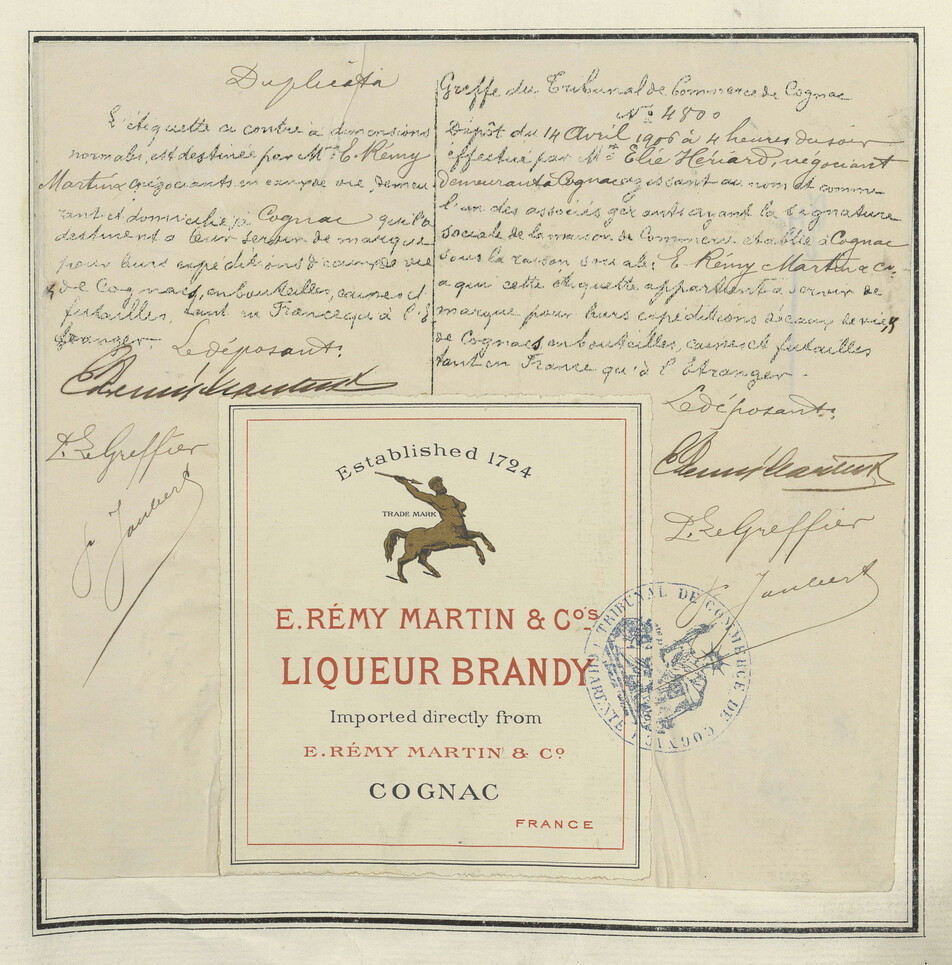 Duplicata
L'étiquette ci contre à dimensions
normales, est destinée par Mrs E. Rémy
Martin & Co négociants en eaux de vie, demeu
rant et domiciliés à Cognac qui la
destinent à leur servir de marque
pour leurs expéditions d'eaux de vie
de Cognac, en bouteilles, caisses et
futailles, tant en France qu'à l'E
tranger.
Le déposant:
E Remy Martin & Co
P. Le Greffier
Joubert
Greffe du Tribunal de Commerce de Cognac
No 4800
Dépôt du 14 Avril 1906 à 4 heures du soir
éffectué par Mr Elie Hériard, négociant
demeurant à Cognac agissant au nom et comme
l'un des associés gérants ayant la signature
sociale de la maison de Commerce établie à Cognac
sous la raison sociale: E. Rémy Martin & Co.
à qui cette étiquette appartient à servir de
marque pour leurs expéditions d'eaux de vie,
de Cognacs en bouteilles, caisses et futailles
tant en France qu'à l'Etranger.
Le déposant:
E Remy Martin & Co
P. Le Greffier
Joubert
Established 1724
TRADE MARK
E. RÉMY MARTIN & Co's
LIQUEUR BRANDY
Imported directly from
E. RÉMY MARTIN & Co
COGNAC
FRANCE
TRIBUNAL DE COMMERCE DE COGNAC (CHARENTE)